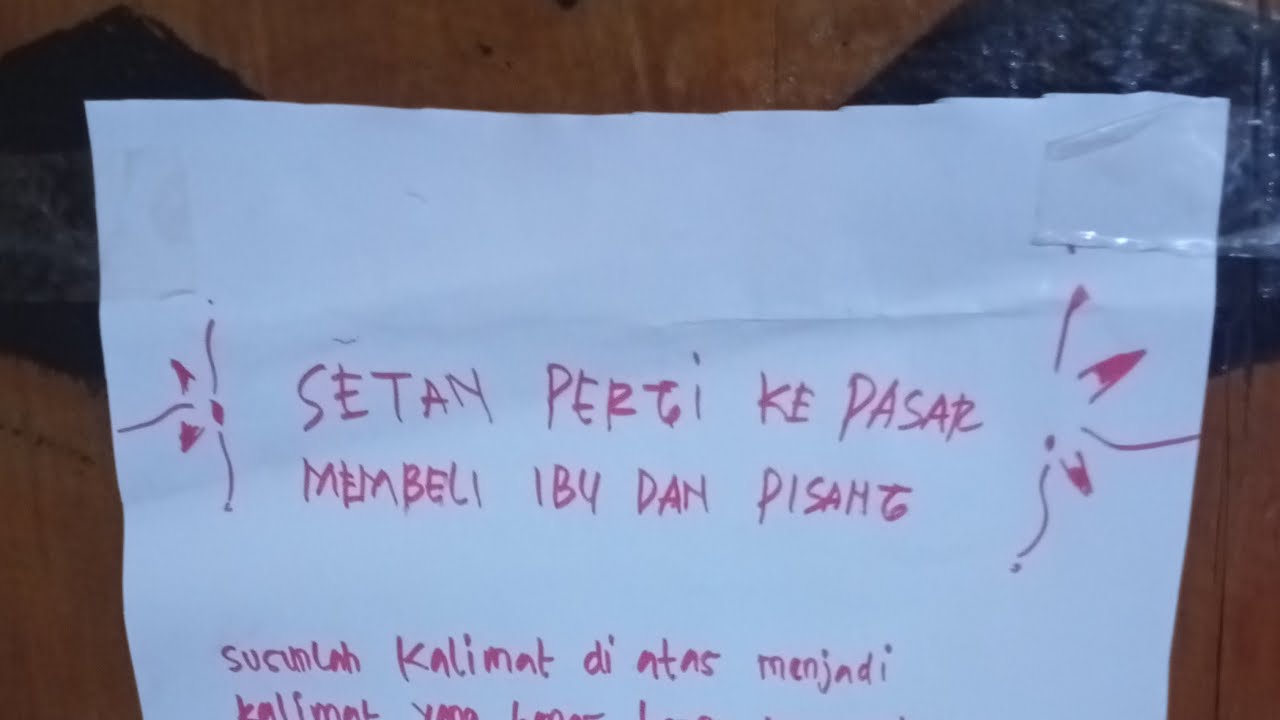 SETAN PERGI KE PASAR
MEMBELI IBU DAN PISANG
susunlah kalimat di atas menjadi
kalimat yang